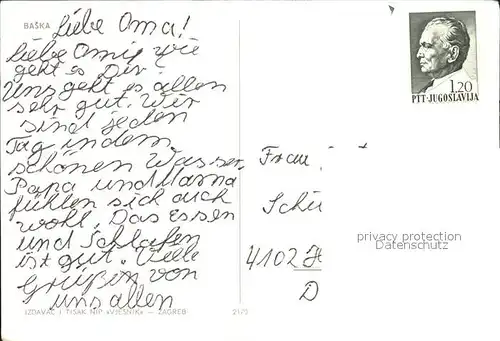 BAŠKA
Liebe Oma!
Liebe Omi wie
geht es Dir
Uns geht es allen
sehr gut. Wir
sind jeden
Tag in dem
schönen Wasser.
Papa und Mama
fühlen sich auch
wohl. Das Essen
und Schlafen
ist gut. Viele
Grüße von
uns allen
IZDAVAČ I TISAK NIP »VJESNIK« — ZAGREB
1.20
PTT-JUGOSLAVIJA
Frau
Schü
4102 H
D
privacy protection
Datenschutz